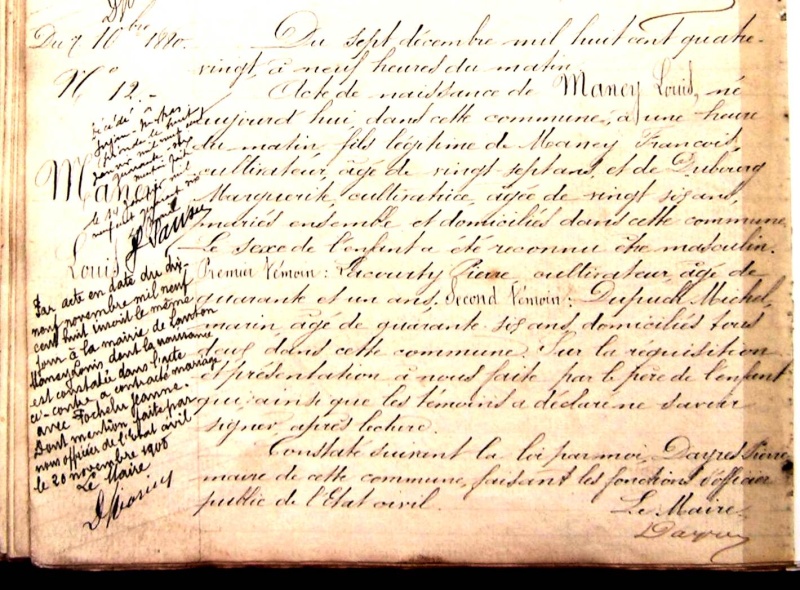 Du 7 10bre 1880.
No 12.-
Maney
Louis
Décédé à
le huit
mil
Par acte en date du dix-
neuf novembre mil neuf
cent huit inscrit le même
jour à la mairie de
Maney Louis dont la naissance
est constatée dans l'acte
ci-contre a contracté mariage
avec Fochelu Jeanne.
Dont mention faite par
nous officier de l'état civil
le 20 novembre 1908
Le Maire
Du sept décembre mil huit cent quatre-
vingt, à neuf heures du matin
Acte de naissance de Maney Louis, né
aujourd'hui, dans cette commune, à une heure
du matin fils légitime de Maney François,
cultivateur, âgé de vingt sept ans, et de Dubourg
Marguerite, cultivatrice, âgée de vingt six ans,
mariés ensemble et domiciliés dans cette commune
Le sexe de l'enfant a été reconnu être masculin.
Premier Témoin: Lacourty Pierre cultivateur, âgé de
quarante et un ans. Second Témoin: Dupuch Michel,
marin, âgé de quarante six ans, domiciliés tous
deux dans cette commune. Sur la réquisition
et présentation à nous faite par le père de l'enfant
qui ainsi que les témoins a déclaré ne savoir
signer après lecture.
Constaté suivant la loi par moi, Dayres Pierre
maire de cette commune, faisant les fonctions d'officier
public de l'Etat civil.
Le Maire,
Dayres